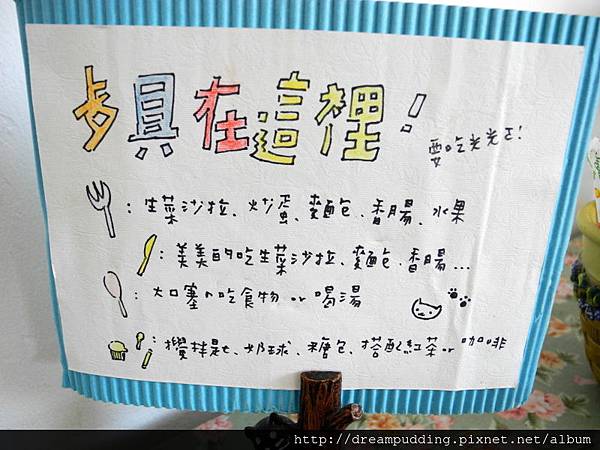 歺具在這裡!
要吃光光ㄛ!
: 生菜沙拉、炒蛋、麵包、香腸、水果
: 美美的吃生菜沙拉、麵包、香腸...
: 大口塞ㄉ吃食物 or 喝湯
: 攪拌匙、奶球、糖包、搭配紅茶 or 咖啡
http://dreampudding.pixnet.net/album